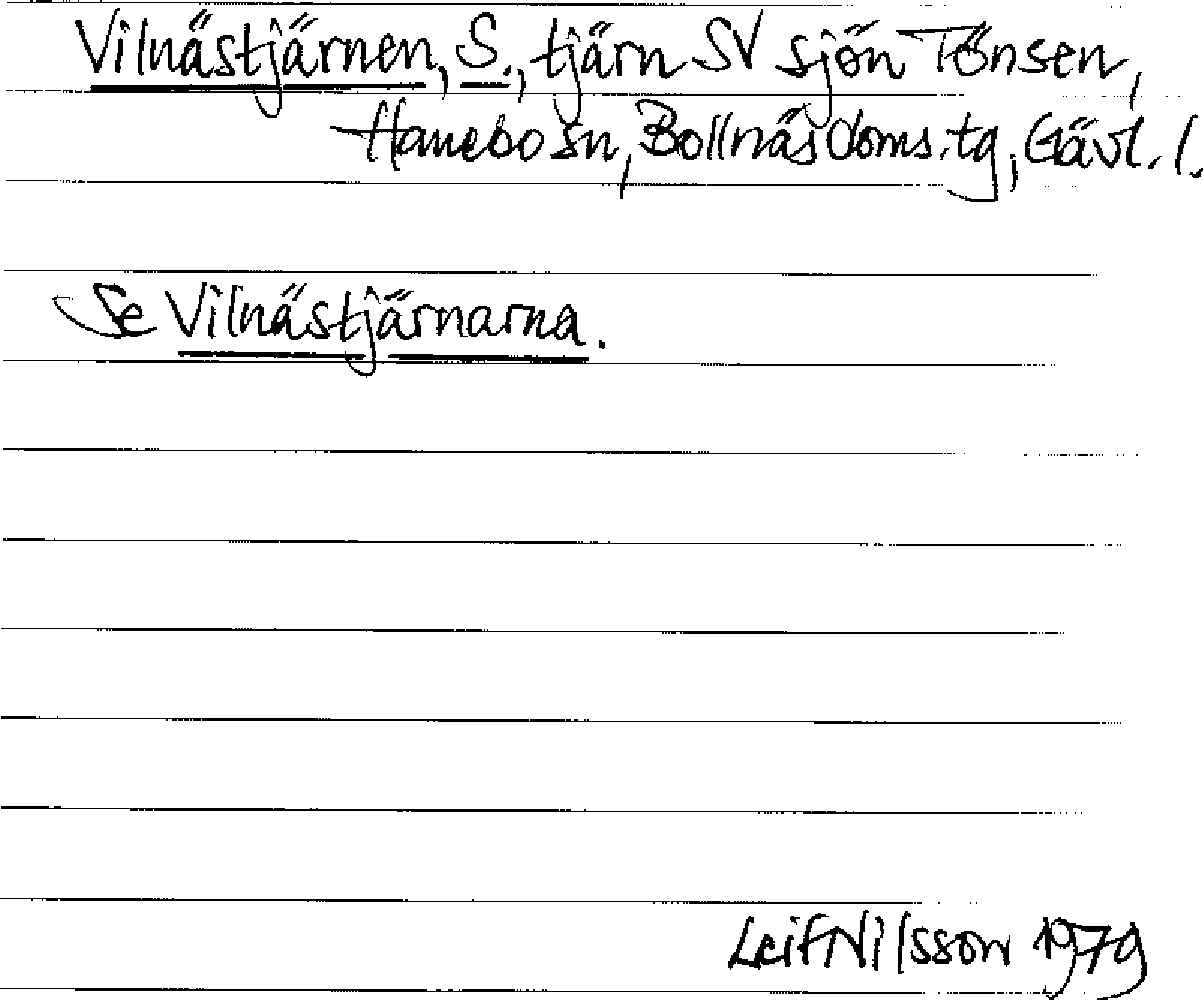 Vilnästjärnen, S., tjärn SV sjön Tönsen,
Hanebo sn, Bollnäs doms. tg, Gävl. l.
Se Vilnästjärnarna.
Leif Nilsson 1979